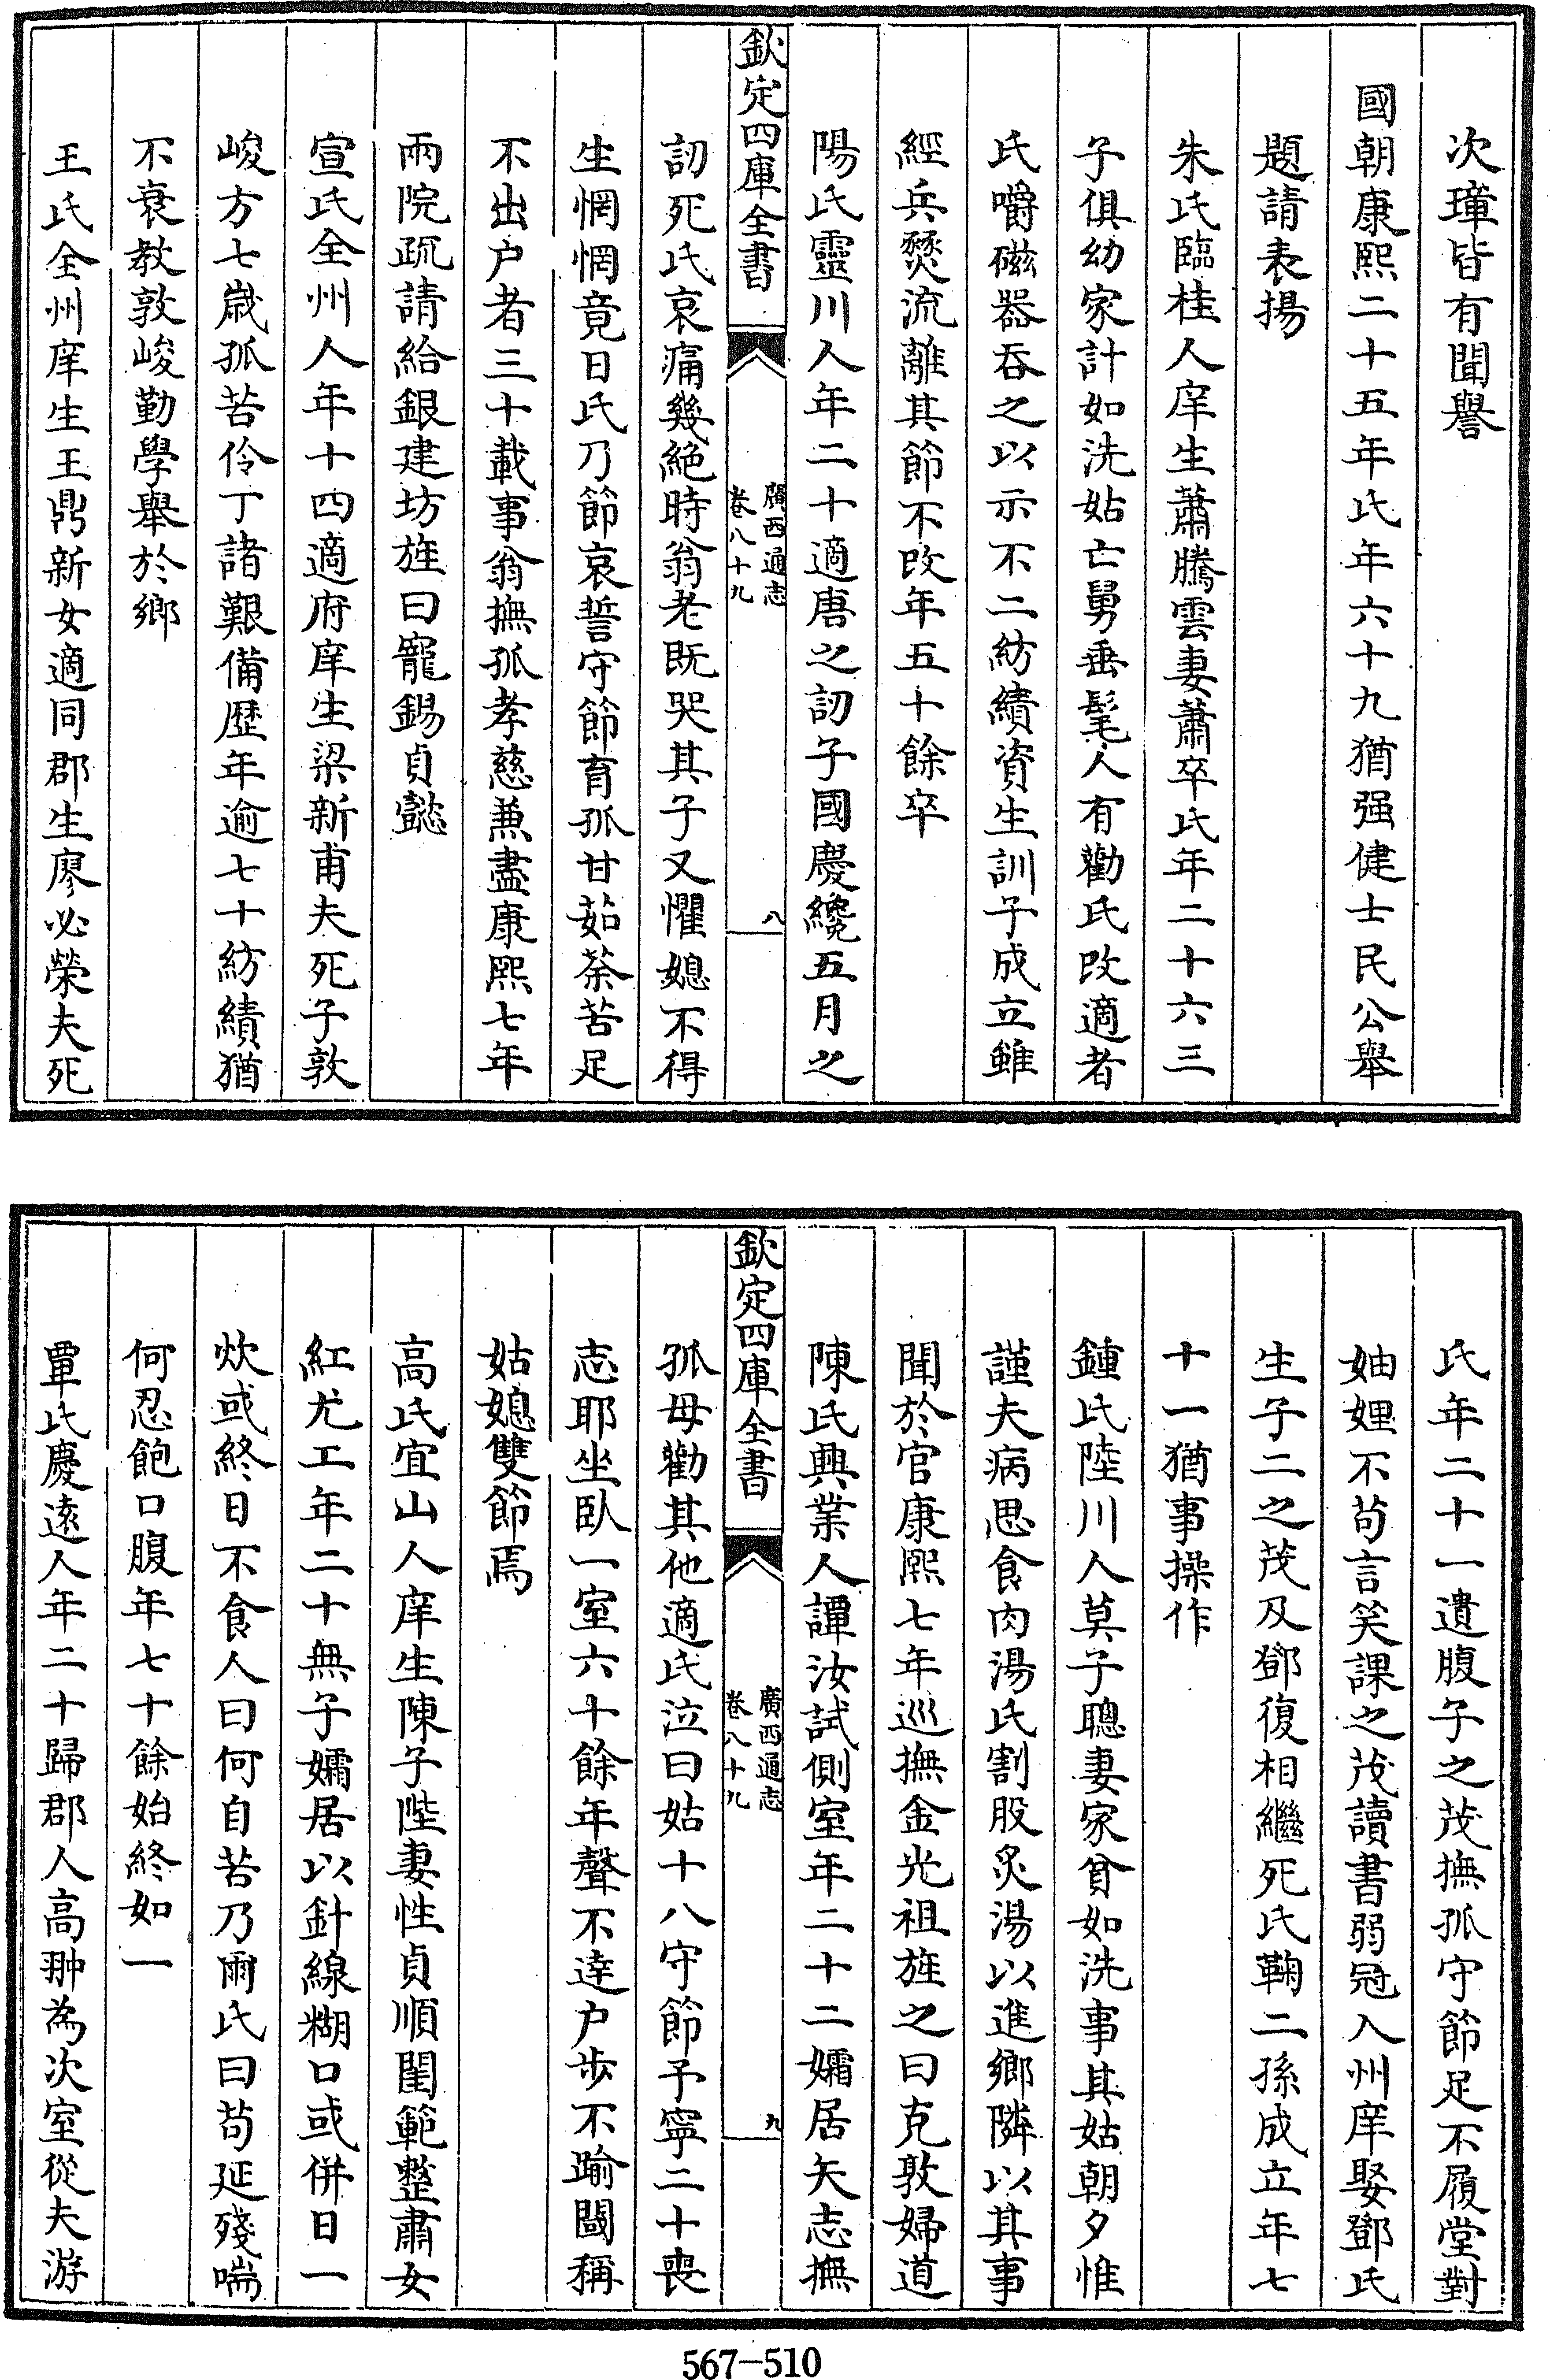 次璋皆有聞譽
國朝康熙二十五年氏年六十九猶强健士民公舉
題請表揚
朱氏臨桂人庠生蕭騰雲妻蕭卒氏年二十六三
子俱幼家計如洗姑亡舅垂髦人有勸氏改適者
氏嚼磁器吞之以示不二紡績資生訓子成立雖
經兵燹流離其節不改年五十餘卒
陽氏靈川人年二十適唐之訒子國慶纔五月之
欽定四庫全書
廣西通志
卷八十九
八
訒死氏哀痛幾絕時翁老既哭其子又懼媳不得
生惘惘竟日氏乃節哀誓守節育孤甘茹荼苦足
不出户者三十載事翁撫孤孝慈兼盡康熙七年
兩院疏請給銀建坊旌曰寵錫貞懿
宣氏全州人年十四適府庠生梁新甫夫死子敦
峻方七歲孤苦伶丁諸艱備歴年逾七十紡績猶
不衰教敦峻勤學舉於鄉
王氏全州庠生王鼎新女適同郡生廖必榮夫死
氏年二十一遺腹子之茂撫孤守節足不履堂對
妯娌不苟言笑課之茂讀書弱冠入州庠娶鄧氏
生子二之茂及鄧復相繼死氏鞠二孫成立年七
十一猶事操作
鍾氏陸川人莫子聰妻家貧如洗事其姑朝夕惟
謹夫病思食肉湯氏割股炙湯以進鄉隣以其事
聞於官康熙七年巡撫金光祖旌之曰克敦婦道
陳氏興業人譚汝試側室年二十二孀居矢志撫
欽定四庫全書
廣西通志
卷八十九
九
孤母勸其他適氏泣曰姑十八守節予寧二十喪
志耶坐臥一室六十餘年聲不逹户步不踰閾稱
姑媳雙節焉
高氏宜山人庠生陳子陛妻性貞順閨範整肅女
紅尤工年二十無子孀居以針線糊口或併日一
炊或終日不食人曰何自苦乃爾氏曰苟延殘喘
何忍飽口腹年七十餘始終如一
覃氏慶遠人年二十歸郡人高翀為次室從夫游
567-510